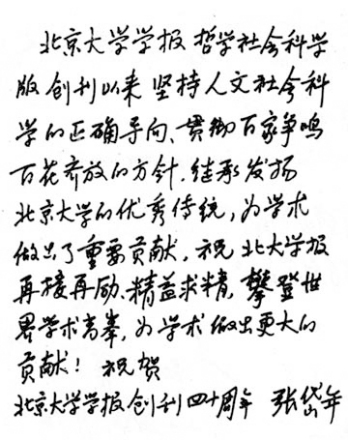 北京大学学报哲学社会科学
版创刊以来坚持人文社会科
学的正确导向、贯彻百家争鸣
百花齐放的方针.继承发扬
北京大学的优秀传统,为学术
做出了重要贡献,祝北大学报
再接再励、精益求精,攀登世
界学术高峯,为学术做出更大的
贡献!祝贺
北京大学学报创刊四十周年 张岱年